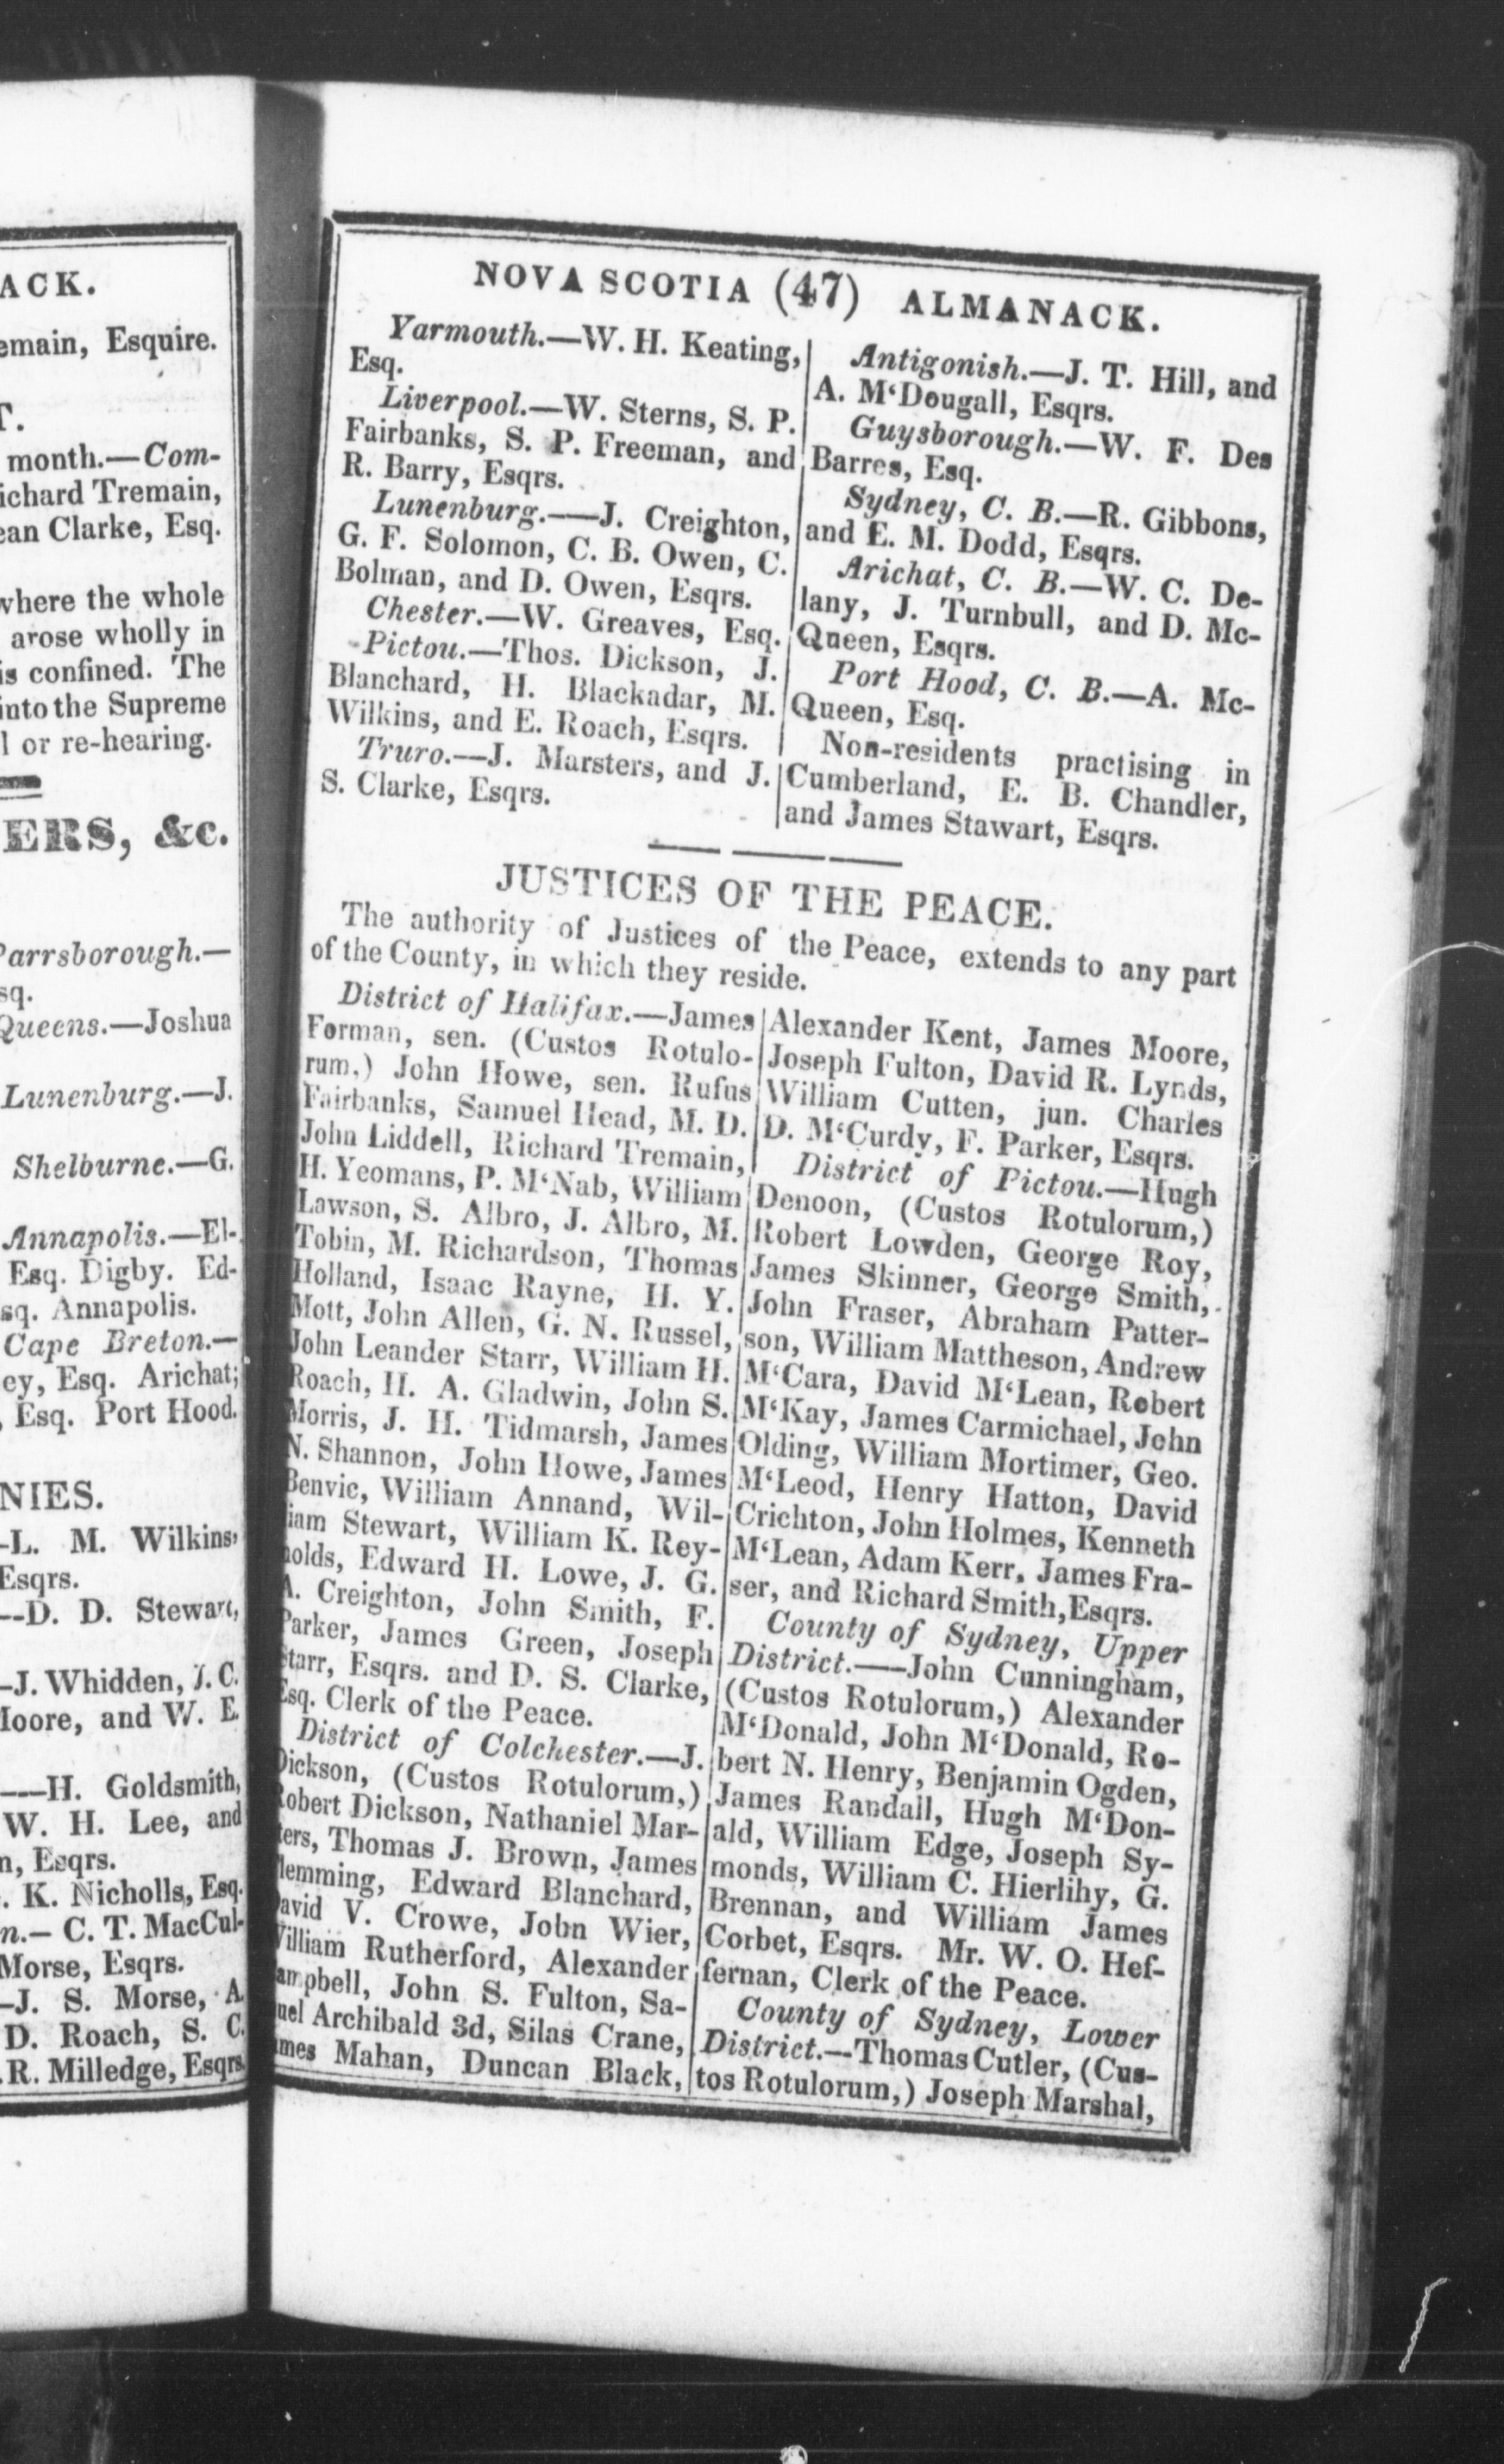 ACK.
Esquire.
month.—Com-
Tremain,
Clarke, Esq.
where the whole
arose wholly in
is confined. The
into the Supreme
or re-hearing.
&c.
Parrsborough.—
Queens.—Joshua
Lunenburg.—J.
Shelburne.—G.
Annapolis.—El-
Esq. Digby. Ed-
Annapolis.
Cape Breton.—
Esq. Arichat;
Esq. Port Hood.
L. M. Wilkins,
Esqrs.
—D. D. Stewart,
—J. Whidden, J. C.
and W. E.
—H. Goldsmith,
W. H. Lee, and
Esqrs.
K. Nicholls, Esq.
C. T. MacCul-
Morse, Esqrs.
—J. S. Morse, A.
D. Roach, S. C.
R. Milledge, Esqrs.
NOVA SCOTIA (47) ALMANACK.
Yarmouth.—W. H. Keating,
Esq.
Liverpool.—W. Sterns, S. P.
Fairbanks, S. P. Freeman, and
R. Barry, Esqrs.
Lunenburg.—J. Creighton,
G. F. Solomon, C. B. Owen, C.
Bolman, and D. Owen, Esqrs.
Chester.—W. Greaves, Esq.
Pictou.—Thos. Dickson, J.
Blanchard, H. Blackadar, M.
Wilkins, and E. Roach, Esqrs.
Truro.—J. Marsters, and J.
S. Clarke, Esqrs.
Antigonish.—J. T. Hill, and
A. M‘Dougall, Esqrs.
Guysborough.—W. F. Des
Barres, Esq.
Sydney, C. B.—R. Gibbons,
and E. M. Dodd, Esqrs.
Arichat, C. B.—W. C. De-
lany, J. Turnbull, and D. Mc-
Queen, Esqrs.
Port Hood, C. B.—A. Mc-
Queen, Esq.
Non-residents practising in
Cumberland, E. B. Chandler,
and James Stawart, Esqrs.
JUSTICES OF THE PEACE.
The authority of Justices of the Peace, extends to any part
of the County, in which they reside.
District of Halifax.—James
Forman, sen. (Custos Rotulo-
rum,) John Howe, sen. Rufus
Fairbanks, Samuel Head, M. D.
John Liddell, Richard Tremain,
H. Yeomans, P. M‘Nab, William
Lawson, S. Albro, J. Albro, M.
Tobin, M. Richardson, Thomas
Holland, Isaac Rayne, H. Y.
Mott, John Allen, G. N. Russel,
John Leander Starr, William H.
Roach, H. A. Gladwin, John S.
Morris, J. H. Tidmarsh, James
N. Shannon, John Howe, James
Benvie, William Annand, Wil-
liam Stewart, William K. Rey-
nolds, Edward H. Lowe, J. G.
A. Creighton, John Smith, F.
Parker, James Green, Joseph
Starr, Esqrs. and D. S. Clarke,
Esq. Clerk of the Peace.
District of Colchester.—J.
Dickson, (Custos Rotulorum,)
Robert Dickson, Nathaniel Mar-
ters, Thomas J. Brown, James
lemming, Edward Blanchard,
David V. Crowe, John Wier,
William Rutherford, Alexander
ampbell, John S. Fulton, Sa-
uel Archibald 3d, Silas Crane,
ames Mahan, Duncan Black,
Alexander Kent, James Moore,
Joseph Fulton, David R. Lynds,
William Cutten, jun. Charles
D. M‘Curdy, F. Parker, Esqrs.
District of Pictou.—Hugh
Denoon, (Custos Rotulorum,)
Robert Lowden, George Roy,
James Skinner, George Smith,
John Fraser, Abraham Patter-
son, William Mattheson, Andrew
M‘Cara, David M‘Lean, Robert
M‘Kay, James Carmichael, John
Olding, William Mortimer, Geo.
M‘Leod, Henry Hatton, David
Crichton, John Holmes, Kenneth
M‘Lean, Adam Kerr, James Fra-
ser, and Richard Smith, Esqrs.
County of Sydney, Upper
District.—John Cunningham,
(Custos Rotulorum,) Alexander
M‘Donald, John M‘Donald, Ro-
bert N. Henry, Benjamin Ogden,
James Randall, Hugh M‘Don-
ald, William Edge, Joseph Sy-
monds, William C. Hierlihy, G.
Brennan, and William James
Corbet, Esqrs. Mr. W. O. Hef-
fernan, Clerk of the Peace.
County of Sydney, Lower
District.—Thomas Cutler, (Cus-
tos Rotulorum,) Joseph Marshal,